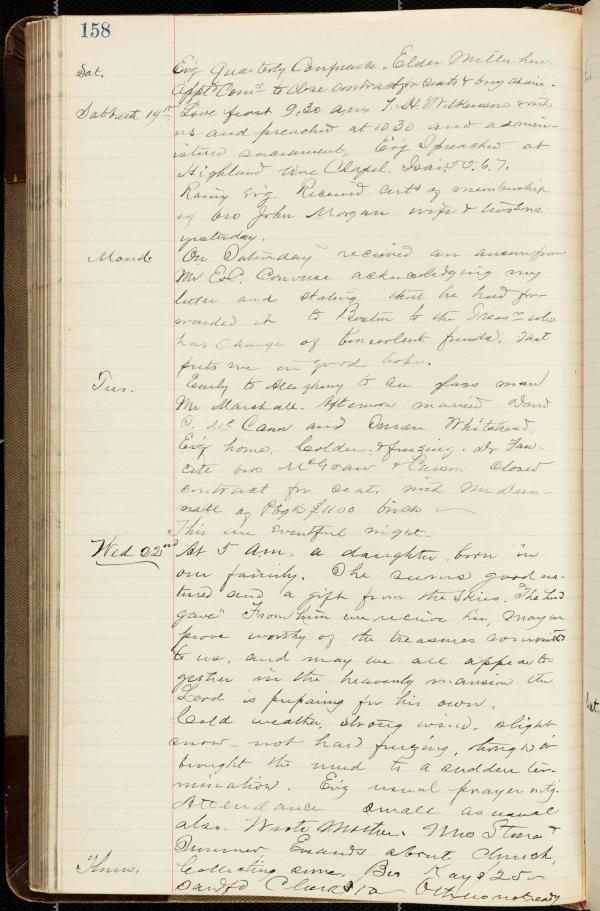 158
Sat. Ev'g Quarterly Conference. Elder Miller here.
Appt Com. to close contract for seats &
Sabbath 19th. Love feast 9.30 a.m. T. H. Wilkinson with
us and preached at 10 30 and admin-
istered sacrament, Ev'g I preached at
Highland Ave Chapel. Isai. 55. 6. 7.
Rainy Ev'g. Received certs of membership
of bro John Morgan wife & two sons
yesterday.
Mond. On Saturday received an answer from
Mr E.C. Converse acknowledging my
letter and stating that he had for-
warded it to Boston to the Treas. who
has charge of benevolent funds. That
puts me in good hope.
Tues. Early to Allegheny to see glass man
Mr Marshall. Afternoon married David
C. McCann and Susan Whitehead.
Ev'g home. Colder & freezing. Dr Faw-
cette bro McGraw & closed
contract for seats with Mr Duns-
more of Pbg $1100
This an eventful night.
Wed 22nd At 5 A.M. a daughter born in
our family. She seems good na-
tured and a gift from the skies. "The Lord
gave" From him we receive her, may we
prove worthy of the treasures committed
to us, and may we all appear to-
gether in the heavenly mansion the
Lord is preparing for his own.
Cold weather, strong wind, slight
snow - not hard freezing,
brought the mud to a sudden ter-
mination. Ev'g usual prayer mtg.
Attendance small as usual
also. Wrote Mother, Mrs
Sumner Errands about church,
Thurs. Collecting some. Bro Kay $25
$10 Others not ready